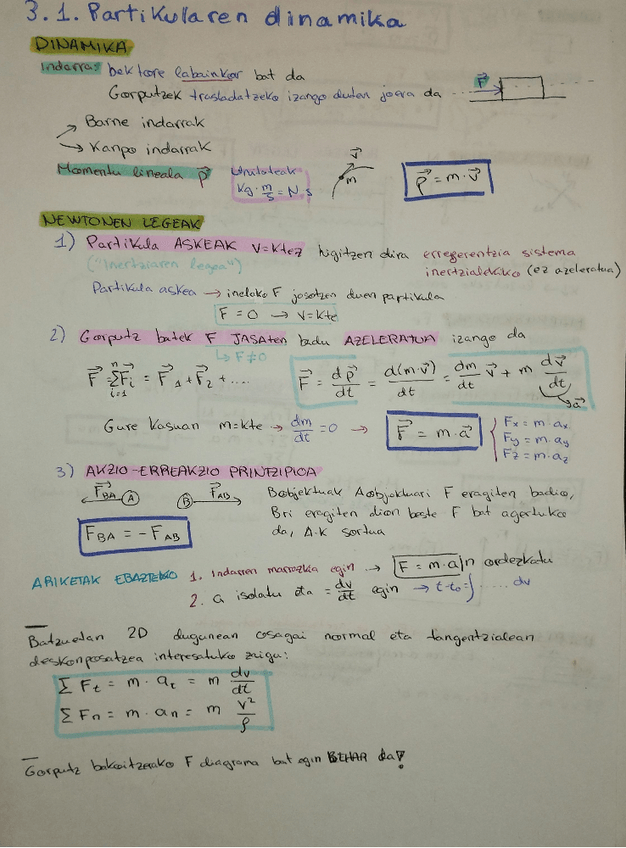 3.1. Partikularen dinamika
DINAMIKA
Indarra: bektore labainkor bat da
Gorputzek trasladatzeko izango duten joera da
F⃗
→ Barne indarrak
→ Kanpo indarrak
Momentu lineala p⃗
Unitateak
kg · m/s = N·s
v⃗
m
p⃗ = m · v⃗
NEWTONEN LEGEAK
1) Partikula ASKEAK v=ktez higitzen dira erreferentzia sistema
("Inertziaren legea")
inertzialekiko (ez azeleratua)
Partikula askea → ineloko F jasotzen duen partikula
F = 0 → v=kte
2) Gorputz batek F JASATEN badu AZELERATUA izango da
↳ F≠0
F⃗ = Σⁿᵢ₌₁ F⃗ᵢ = F⃗₁ + F⃗₂ + ....
F⃗ = dp⃗/dt = d(m·v⃗)/dt = dm/dt v⃗ + m dv⃗/dt
a⃗
Gure kasuan m=kte → dm/dt = 0 → F⃗ = m·a⃗
Fx = m·ax
Fy = m·ay
Fz = m·az
3) AKZIO-ERREAKZIO PRINTZIPIOA
F⃗BA A B F⃗AB
B objektuak A objektuari F eragiten badio,
B ri eragiten dion beste F bat agertuko
da, A-k sortua
FBA = - FAB
ARIKETAK EBAZTEKO 1. Indarren marrazkia egin → F = m·a |n ordezkatu
2. a isolatu eta = dv/dt egin → t-t₀ = ∫ ..... dv
Batzuetan 2D dugunean osagai normal eta tangentzialean
deskonposatzea interesatuko zaigu:
Σ Ft = m · at = m dv/dt
Σ Fn = m · an = m v²/ρ
Gorputz bakoitzerako F diagrama bat egin BEHAR da!